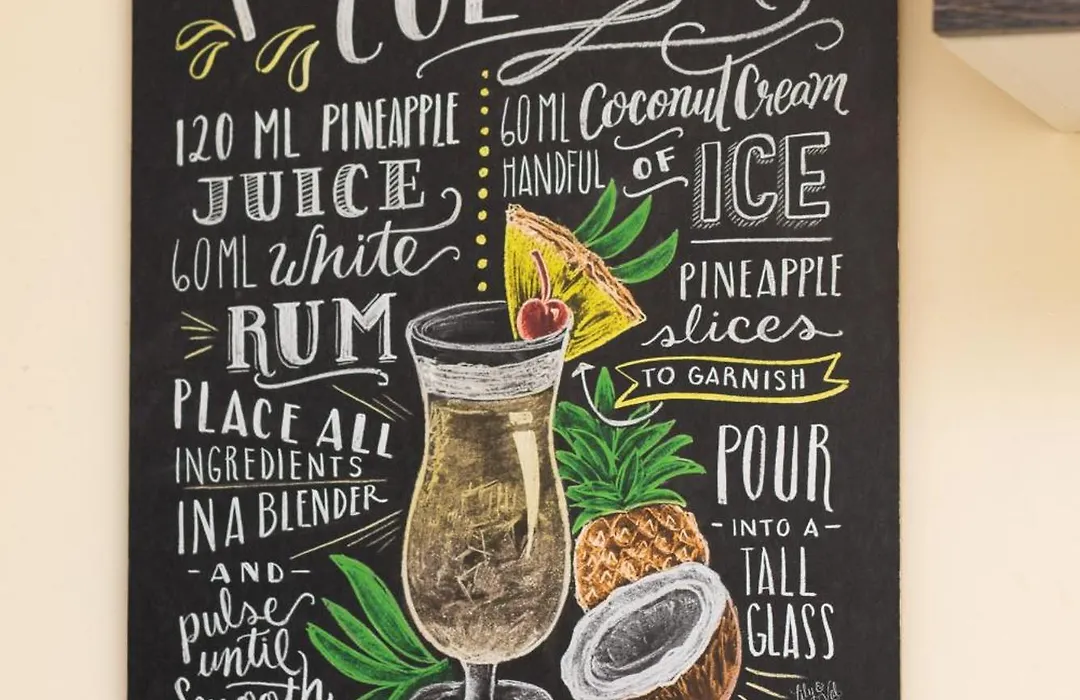 120 ML PINEAPPLE
JUICE
60ML White
RUM
PLACE ALL
INGREDIENTS
IN A BLENDER
- AND -
pulse
until
Smooth
60 ML Coconut Cream
HANDFUL OF ICE
PINEAPPLE
slices
TO GARNISH
POUR
- INTO A -
TALL
GLASS